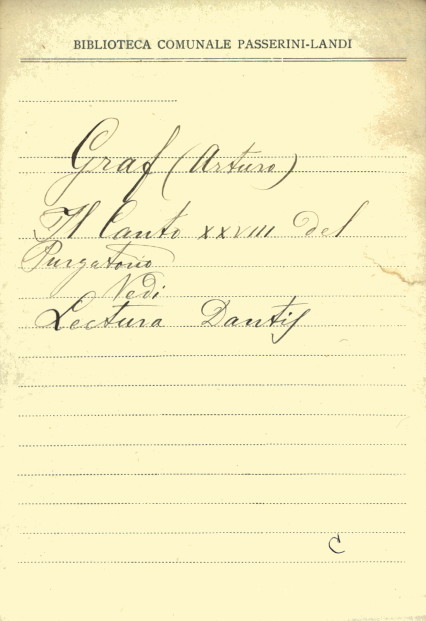 BIBLIOTECA COMUNALE PASSERINI-LANDI
Graf (Arturo)
Il Canto XXVIII del
Purgatorio
Vedi
Lectura Dantis
C